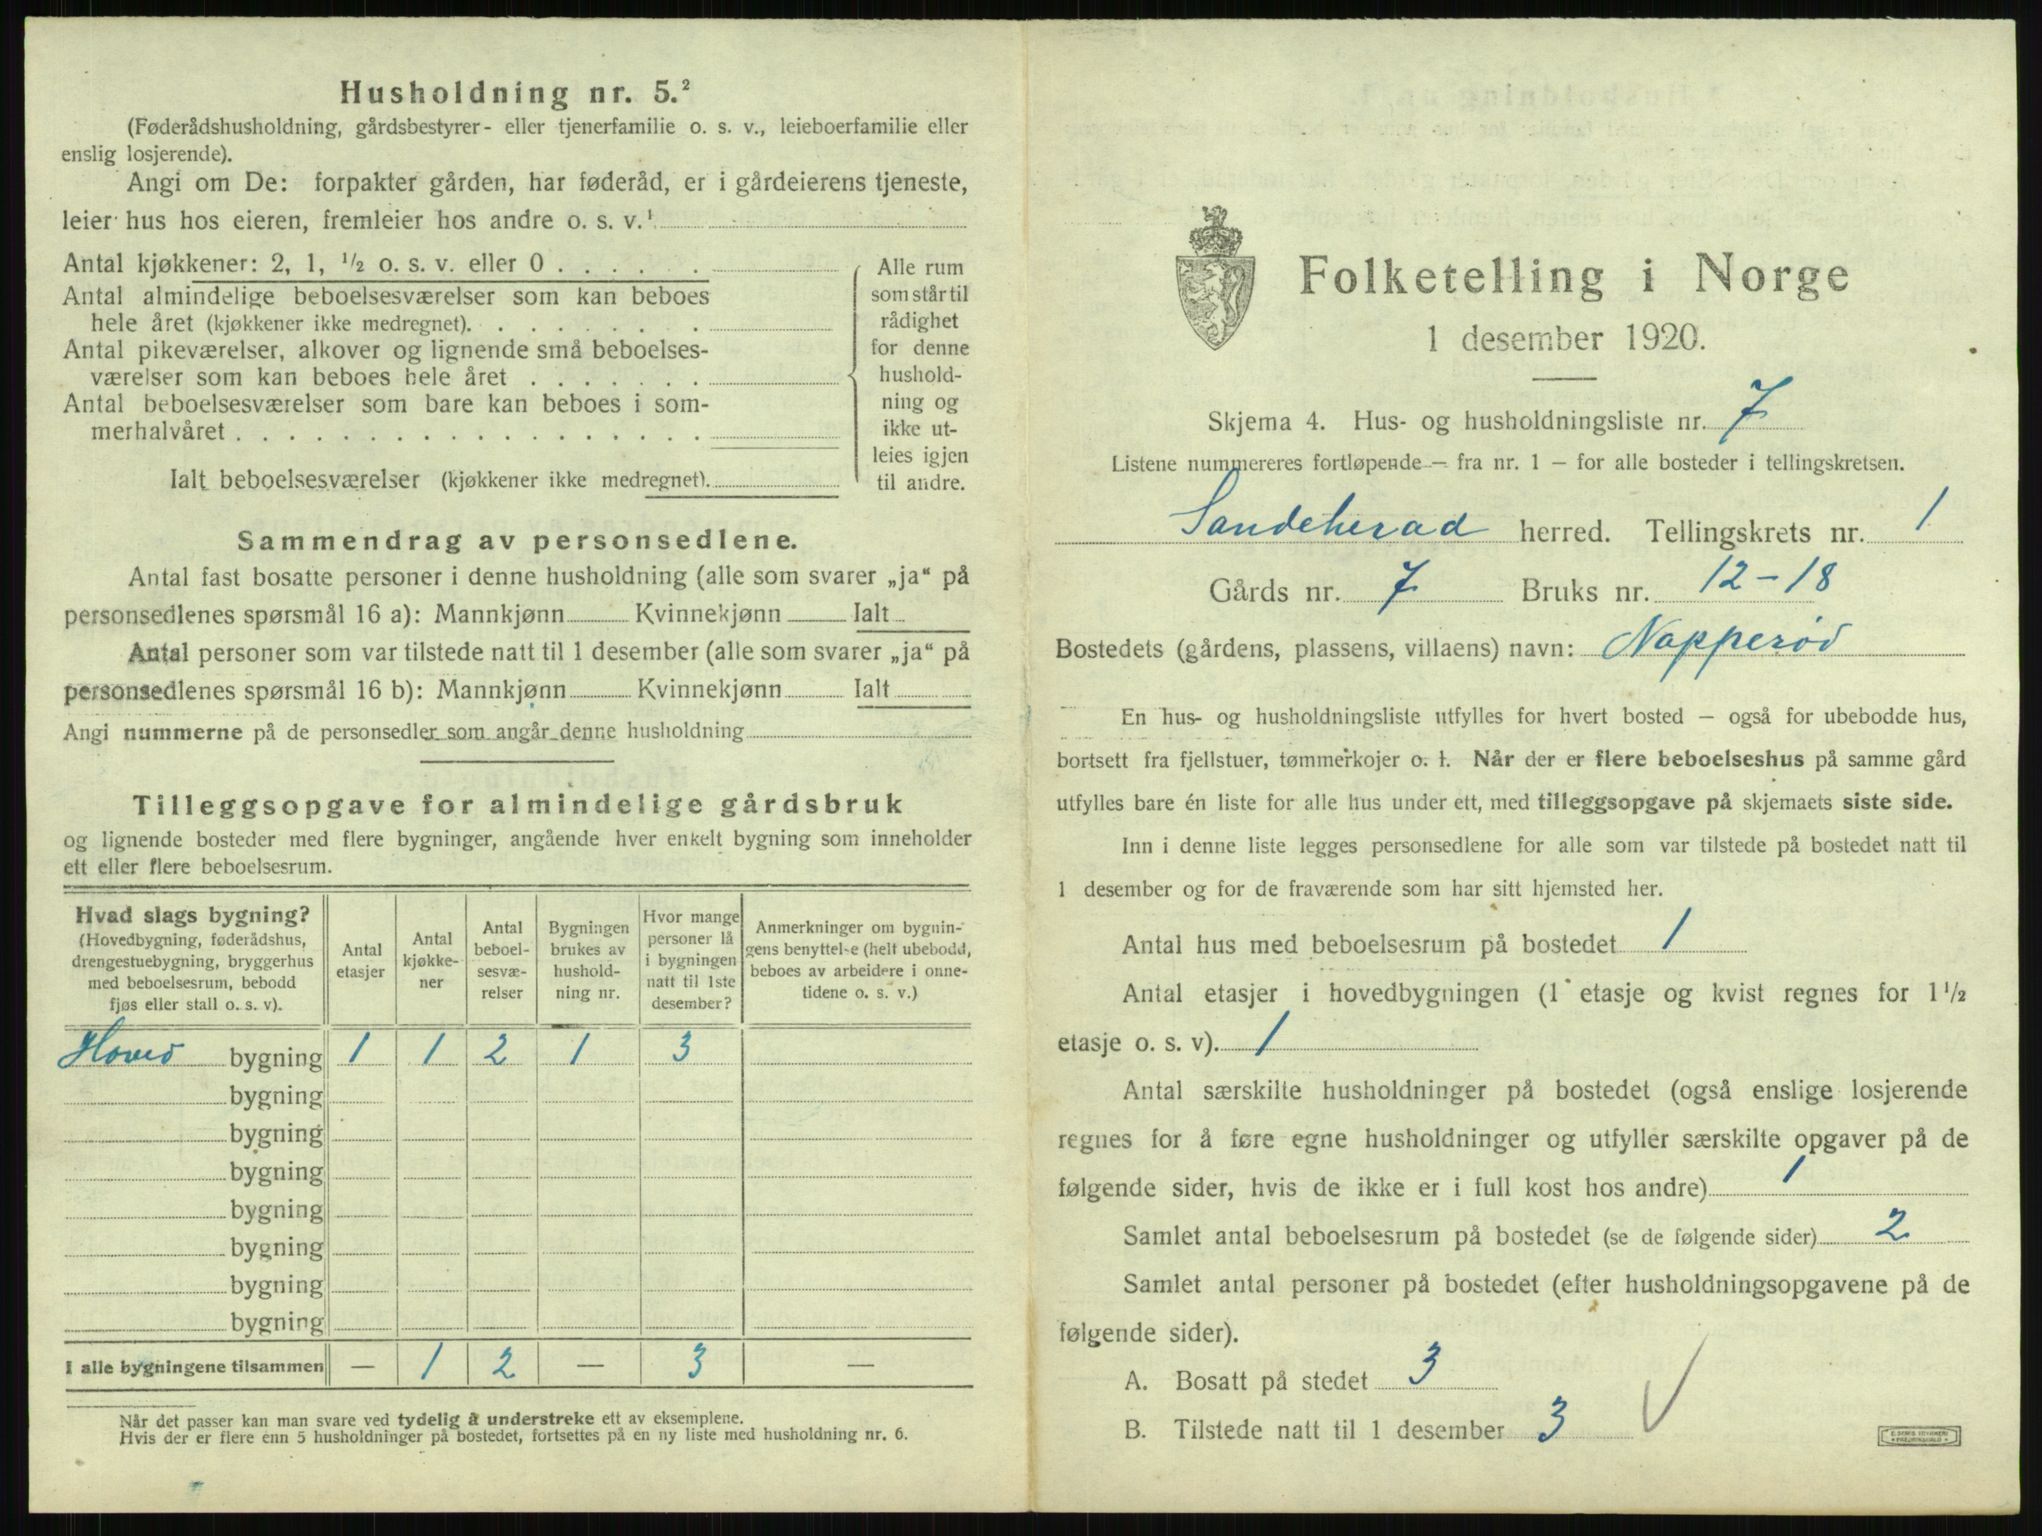 Husholdning nr. 5.²
(Føderådshusholdning, gårdsbestyrer- eller tjenerfamilie o. s. v., leieboerfamilie eller
enslig losjerende).
Angi om De: forpakter gården, har føderåd, er i gårdeierens tjeneste,
leier hus hos eieren, fremleier hos andre o. s. v.¹
Antal kjøkkener: 2, 1, ½ o. s. v. eller 0 . . . . . .
Antal almindelige beboelsesværelser som kan beboes
hele året (kjøkkener ikke medregnet). . . . . . . .
Antal pikeværelser, alkover og lignende små beboelses-
værelser som kan beboes hele året . . . . . . .
Antal beboelsesværelser som bare kan beboes i som-
merhalvåret . . . . . . . . . . . . . . . . . .
Ialt beboelsesværelser (kjøkkener ikke medregnet).
Alle rum
som står til
rådighet
for denne
hushold-
ning og
ikke ut-
leies igjen
til andre.
Sammendrag av personsedlene.
Antal fast bosatte personer i denne husholdning (alle som svarer „ja“ på
personsedlenes spørsmål 16 a): Mannkjønn Kvinnekjønn Ialt
Antal personer som var tilstede natt til 1 desember (alle som svarer „ja“ på
personsedlenes spørsmål 16 b): Mannkjønn Kvinnekjønn Ialt
Angi nummerne på de personsedler som angår denne husholdning
Tilleggsopgave for almindelige gårdsbruk
og lignende bosteder med flere bygninger, angående hver enkelt bygning som inneholder
ett eller flere beboelsesrum.
Hvad slags bygning?
(Hovedbygning, føderådshus,
drengestuebygning, bryggerhus
med beboelsesrum, bebodd
fjøs eller stall o. s. v).
Antal
etasjer
Antal
kjøkke-
ner
Antal
beboel-
sesvæ-
relser
Bygningen
brukes av
hushold-
ning nr.
Hvor mange
personer lå
i bygningen
natt til 1ste
desember?
Anmerkninger om bygnin-
gens benyttelse (helt ubebodd,
beboes av arbeidere i onne-
tidene o. s. v.)
Hoved bygning 1 1 2 1 3
bygning
bygning
bygning
bygning
bygning
bygning
bygning
I alle bygningene tilsammen — 1 2 — 3 —
Når det passer kan man svare ved tydelig å understreke ett av eksemplene.
Hvis der er flere enn 5 husholdninger på bostedet, fortsettes på en ny liste med husholdning nr. 6.
Folketelling i Norge
1 desember 1920.
Skjema 4. Hus- og husholdningsliste nr. 7
Listene nummereres fortløpende — fra nr. 1 — for alle bosteder i tellingskretsen.
Sandeherad herred. Tellingskrets nr. 1
Gårds nr. 7 Bruks nr. 12-18
Bostedets (gårdens, plassens, villaens) navn: Napperød
En hus- og husholdningsliste utfylles for hvert bosted — også for ubebodde hus,
bortsett fra fjellstuer, tømmerkojer o. l. Når der er flere beboelseshus på samme gård
utfylles bare én liste for alle hus under ett, med tilleggsopgave på skjemaets siste side.
Inn i denne liste legges personsedlene for alle som var tilstede på bostedet natt til
1 desember og for de fraværende som har sitt hjemsted her.
Antal hus med beboelsesrum på bostedet 1
Antal etasjer i hovedbygningen (1 etasje og kvist regnes for 1½
etasje o. s. v). 1
Antal særskilte husholdninger på bostedet (også enslige losjerende
regnes for å føre egne husholdninger og utfyller særskilte opgaver på de
følgende sider, hvis de ikke er i full kost hos andre) 1
Samlet antal beboelsesrum på bostedet (se de følgende sider) 2
Samlet antal personer på bostedet (efter husholdningsopgavene på de
følgende sider).
A. Bosatt på stedet 3
B. Tilstede natt til 1 desember 3